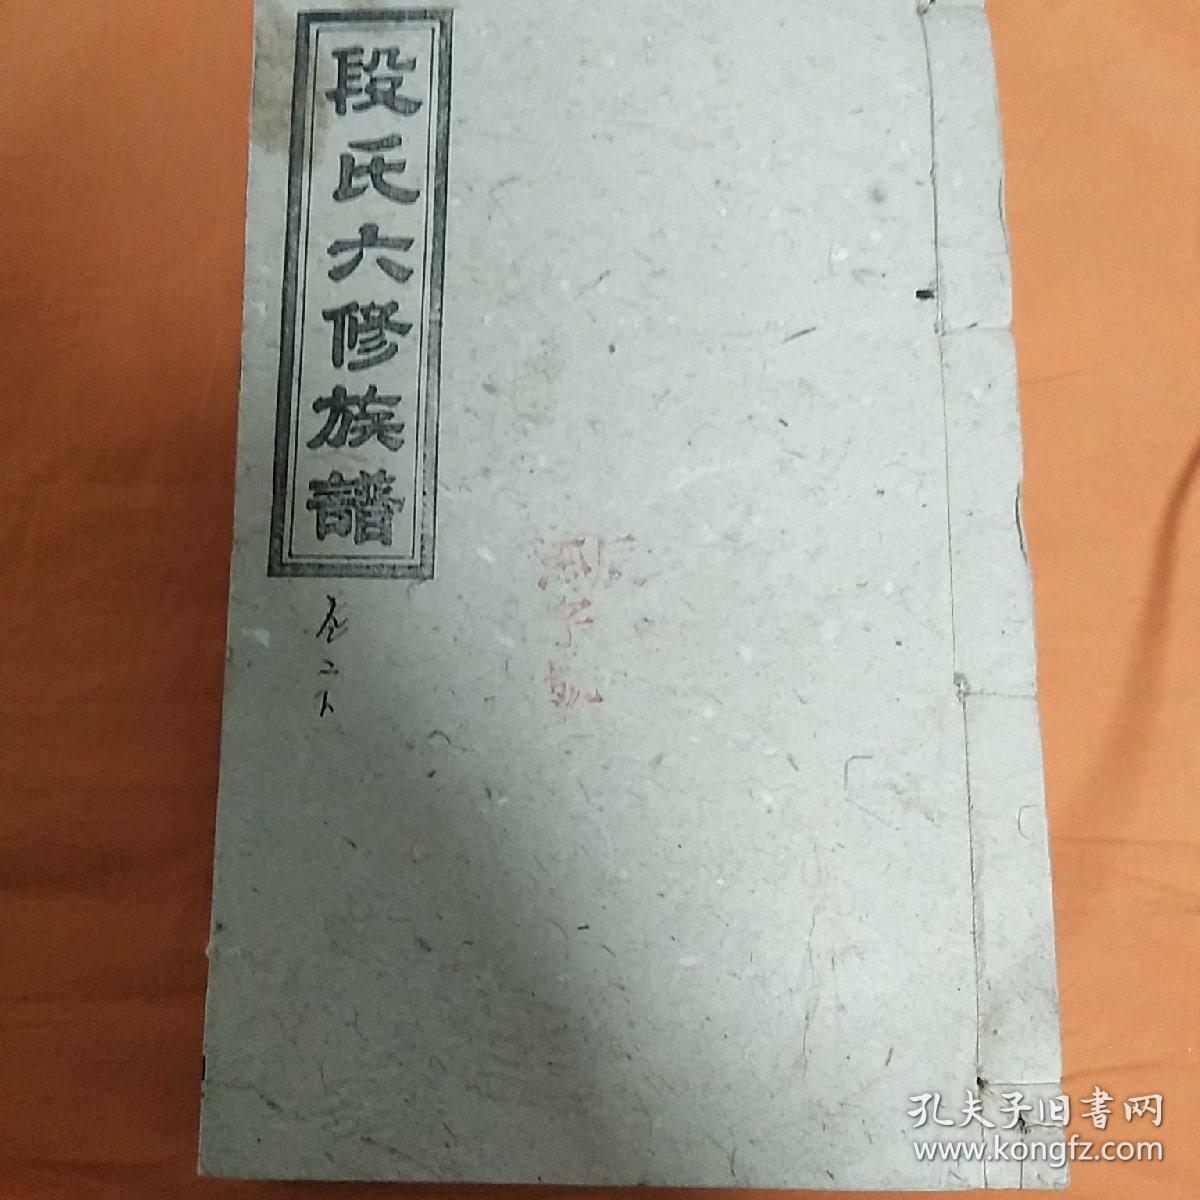 段氏六修族譜
卷二下
孔夫子旧書网
www.kongfz.com